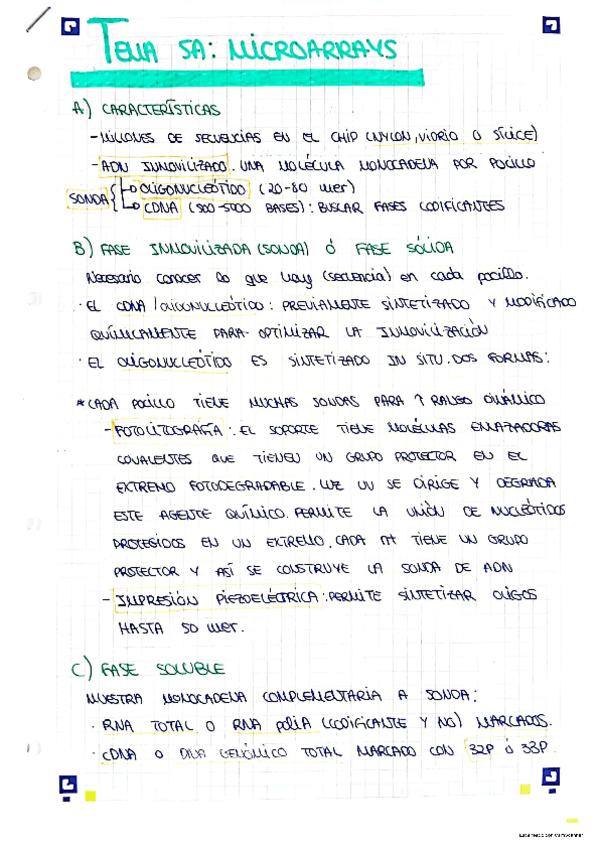 TEMA 5A: MICROARRAYS
A) CARACTERÍSTICAS
- MILLONES DE SECUENCIAS EN EL CHIP (NYLON, VIDRIO O SÍLICE)
- ADN INMOVILIZADO. UNA MOLÉCULA MONOCADENA POR POCILLO
SONDA { → OLIGONUCLEÓTIDO (20-80 mer)
→ CDNA (500-5000 BASES): BUSCAR FASES CODIFICANTES
B) FASE INMOVILIZADA (SONDA) Ó FASE SÓLIDA
Necesario conocer lo que hay (secuencia) en cada pocillo.
· EL CDNA / OLIGONUCLEÓTIDO: PREVIAMENTE SINTETIZADO Y MODIFICADO
QUÍMICAMENTE PARA OPTIMIZAR LA INMOVILIZACIÓN
· EL OLIGONUCLEÓTIDO ES SINTETIZADO IN SITU. DOS FORMAS:
* CADA POCILLO TIENE MUCHAS SONDAS PARA ↑ RANGO DINÁMICO
- FOTOLITOGRAFÍA: EL SOPORTE TIENE MOLÉCULAS ENLAZADORAS
COVALENTES QUE TIENEN UN GRUPO PROTECTOR EN EL
EXTREMO FOTODEGRADABLE. LUZ UV SE DIRIGE Y DEGRADA
ESTE AGENTE QUÍMICO. PERMITE LA UNIÓN DE NUCLEÓTIDOS
PROTEGIDOS EN UN EXTREMO. CADA nt TIENE UN GRUPO
PROTECTOR Y ASÍ SE CONSTRUYE LA SONDA DE ADN
- IMPRESIÓN PIEZOELÉCTRICA: PERMITE SINTETIZAR OLIGOS
HASTA 50 mer.
C) FASE SOLUBLE
MUESTRA MONOCADENA COMPLEMENTARIA A SONDA:
· RNA TOTAL O RNA poliA (CODIFICANTE Y NO) MARCADOS.
· CDNA O DNA GENÓMICO TOTAL MARCADO CON 32P Ó 33P.